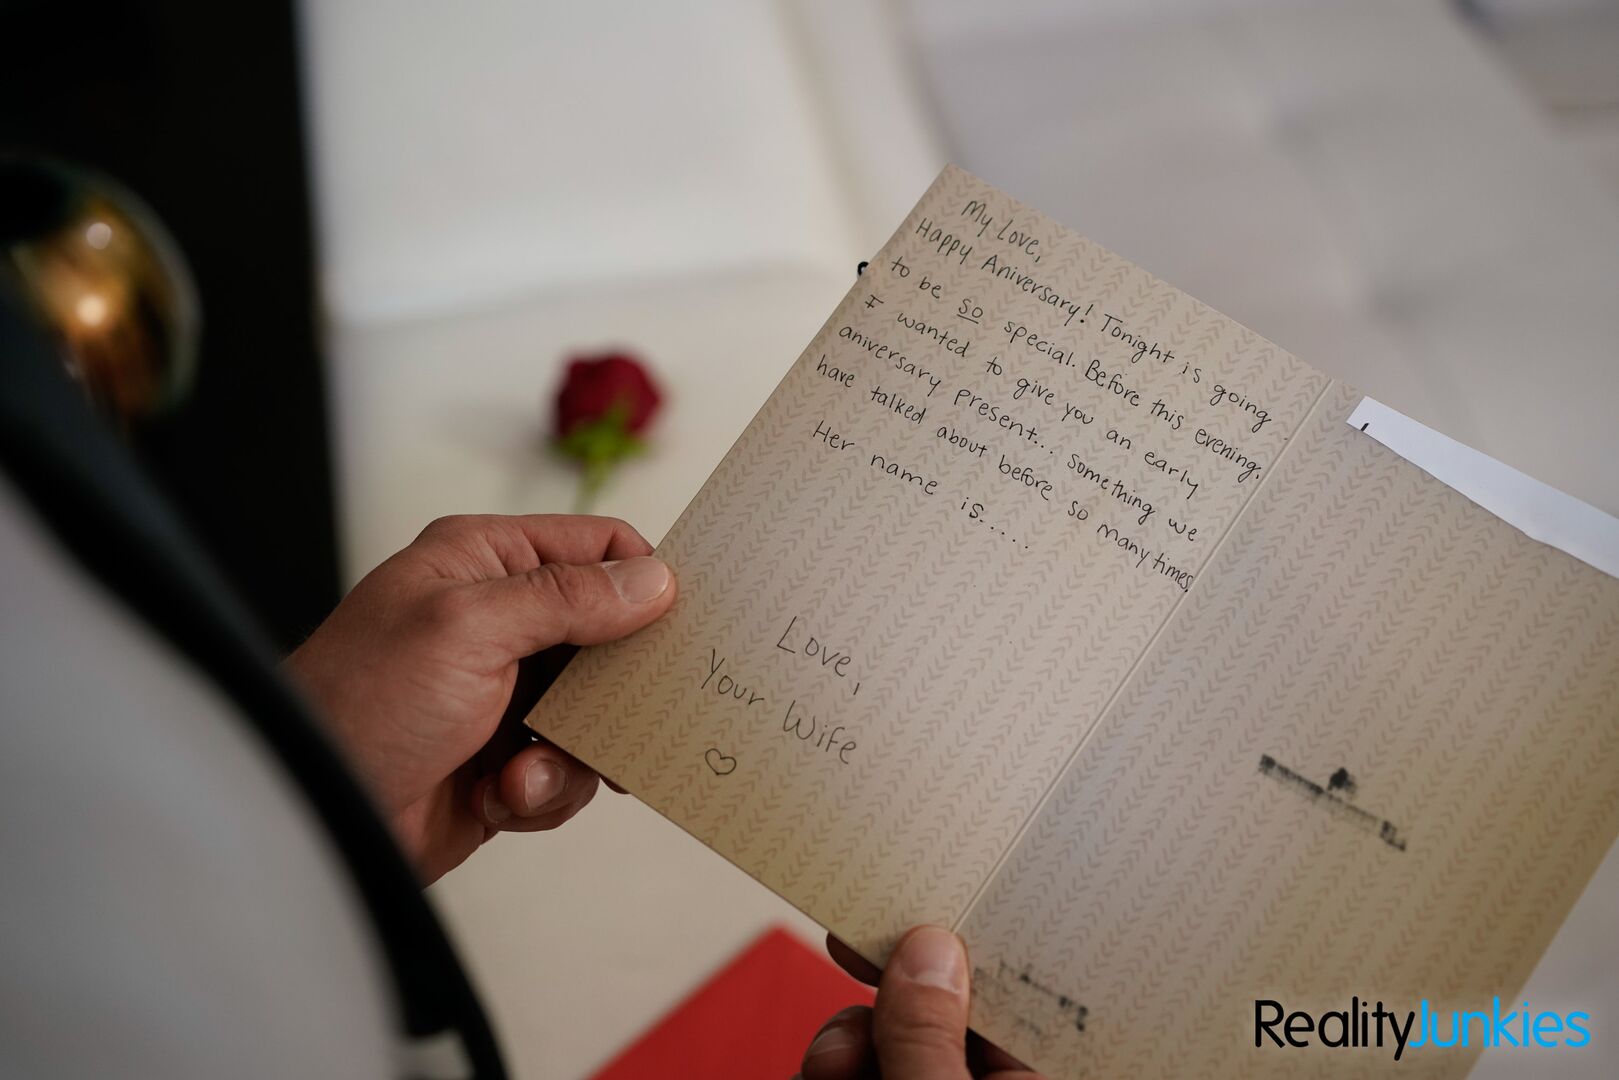 My Love,
Happy Aniversary! Tonight is going
to be so special. Before this evening,
I wanted to give you an early
aniversary present... something we
have talked about before so many times.
Her name is.....
Love,
Your Wife
RealityJunkies